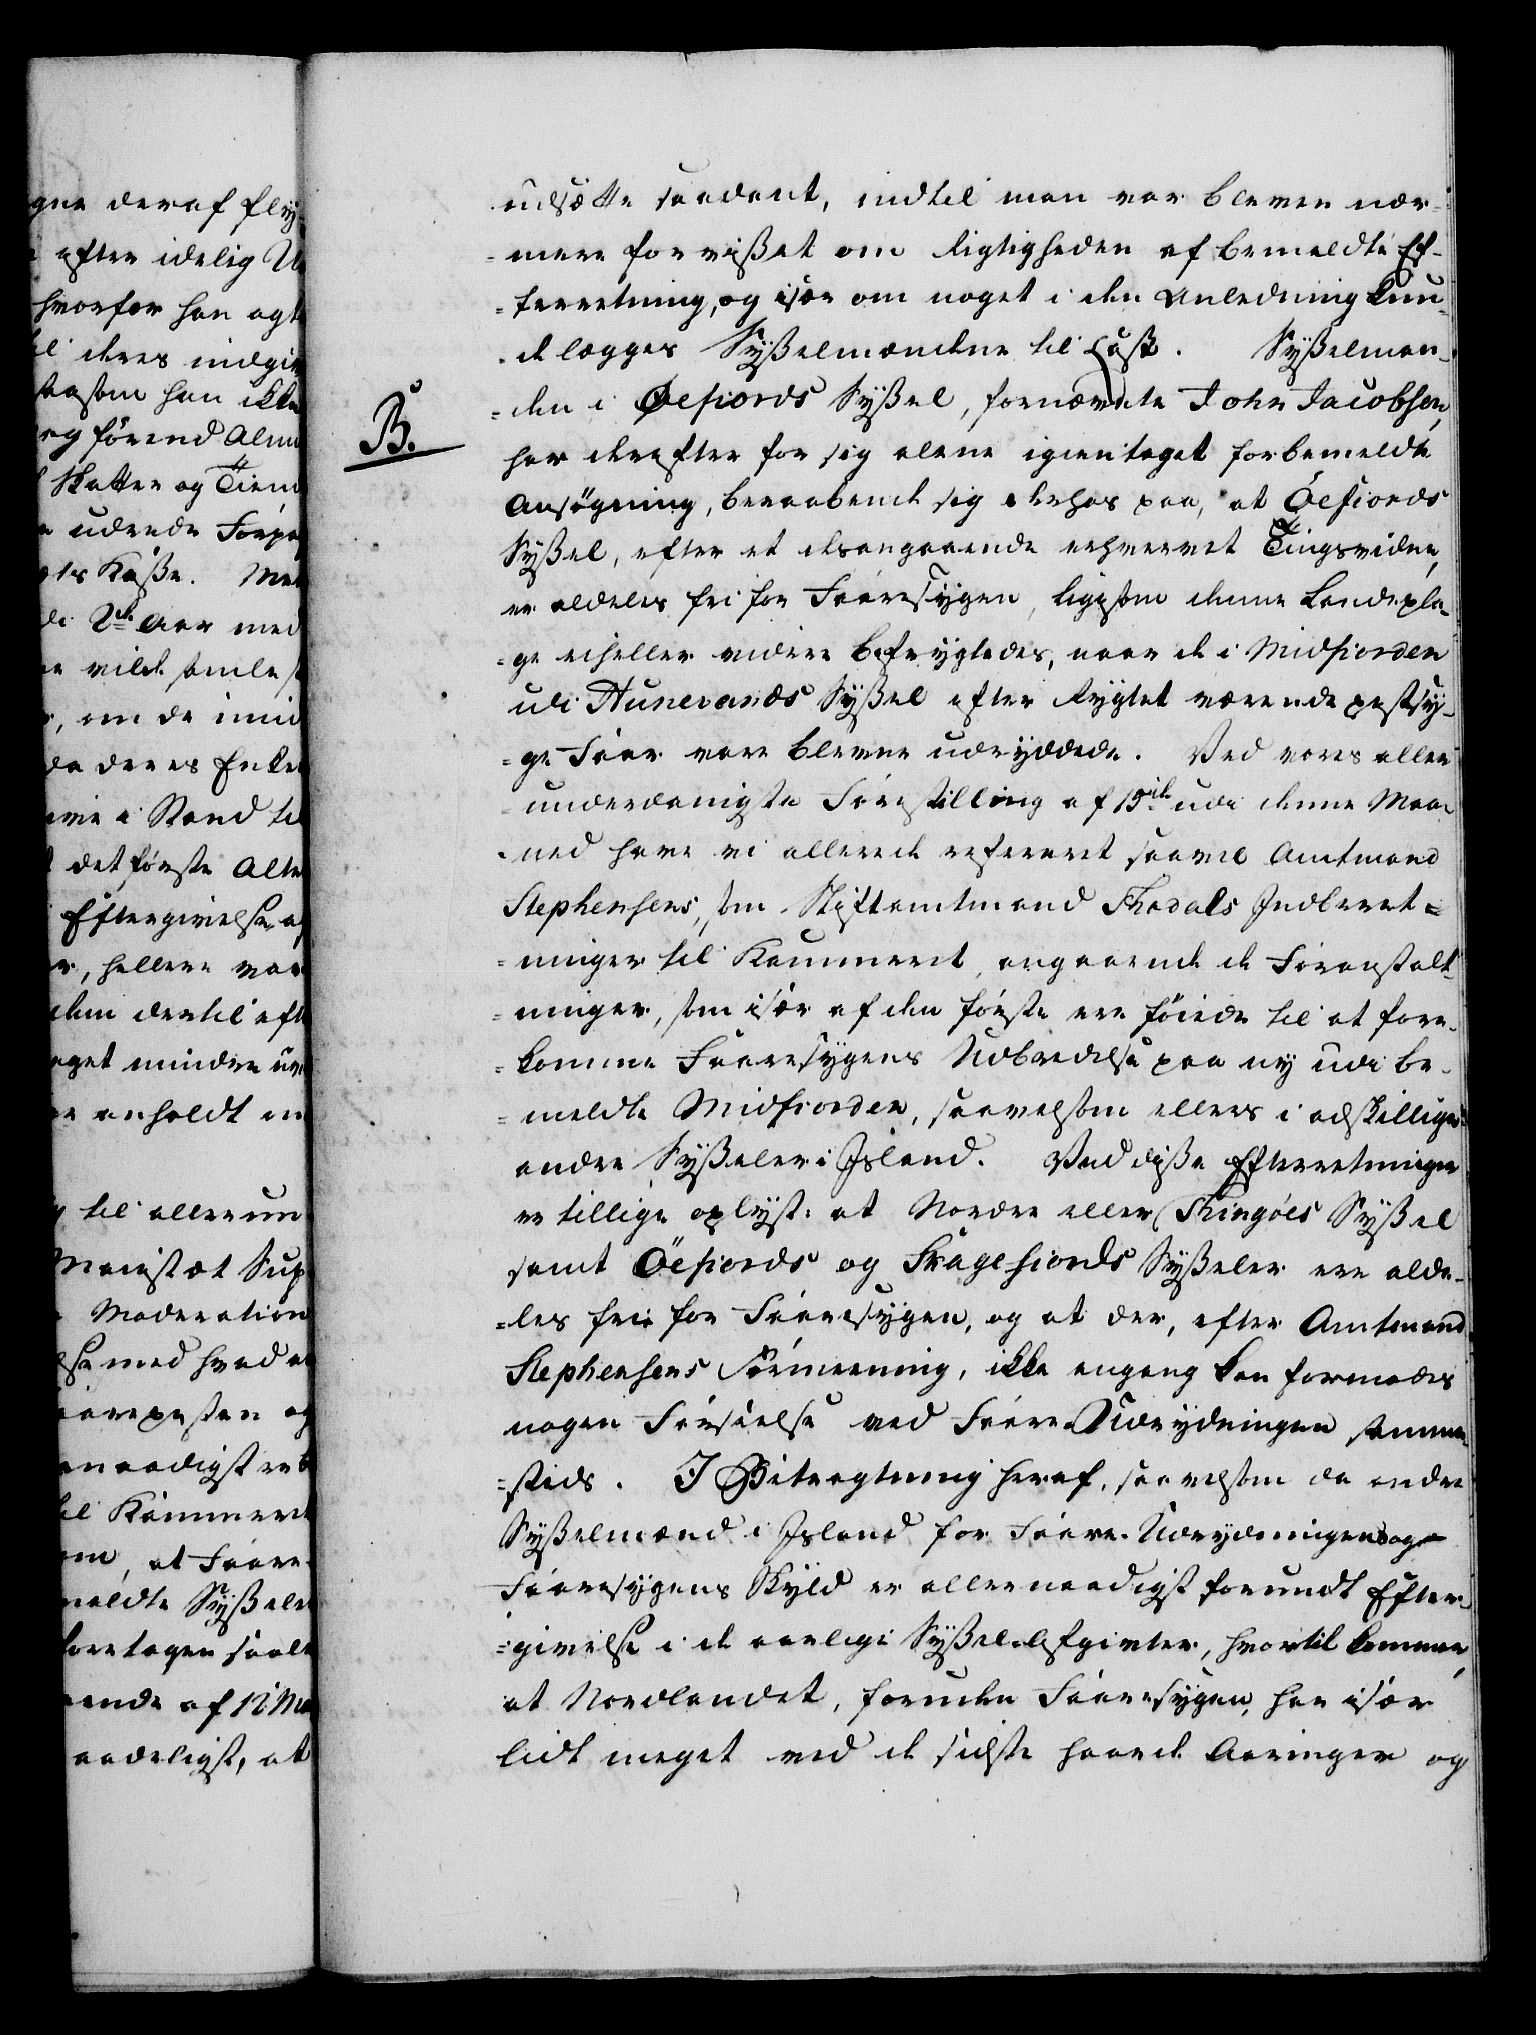 gne deraf fly
efter idelig U
hvorfor han agt
til deres indgiv
saasom han ikke
og førend Alm
Skatter og Tiend
udende Forpa
ets Kaße. Men
di 2de Aar med
e vilde samles
, om de imid
da deres Enke
ere i Stand til
det første Alte
Eftergivelse af
r, hellere var
dem dertil eft
aget mindre un
re anholdt om
til allerun
Maiestæt Sup
Moderation
lse med hvad a
aarepesten og
ernaadigst reb
til Kammeret
om, at Faare-
meldte Sÿßeler
foretagen saale
ende af 12 Ma
aadeligst, at
udsætte saadant, indtil man var bleven nær-
=mere forvißet om Rigtigheden af bemeldte Ef-
=terretning, og især om noget i den Anledning kun-
=de lægges Sÿßelmændene til Last. Sÿßelman-
B.
=den i Øefiords Sÿßel, fornævnte John Jacobsen,
har derefter for sig alene igientaget forbemeldte
Ansøgning, beraabende sig derhos paa, at Öefiords
Sÿßel, efter et desangaaende erhvervet Tingsvidne,
er aldeles fri for Faaresÿgen, ligesom denne Landepla-
=ge eiheller videre befrygtedes, naar de i Midfiorden
udi Hunevands Sÿßel efter Rÿgtet værende pestsÿ-
=ge Faar vare blevne udrÿddede. Ved vores aller-
=underdanigste Forestilling af 15de udi denne Maa-
=ned have vi allerede refereret saavel Amtmand
Stephensens, som Stiftamtmand Thodals Indberet=
=ninger til Kammeret, angaaende de Foranstalt-
=ninger, som især af den første ere føiede til at fore-
=komme Faaresÿgens Udbredelse paa nÿ udi be-
=meldte Midfiorden, saavelsom ellers i adskillige
andre Sÿßeler i Island. Ved diße Efterretninger
er tillige oplÿst, at Nordre eller Thingöes Sÿßel
samt Öefiords og Skagefiords Sÿßeler ere alde-
=les frie for Faaresÿgen, og at der, efter Amtmand
Stephensens Formeening, ikke engang kan formodes
nogen Forsielse ved Faare-Udrÿdningen samme-
=steds. I Betragtning heraf, saavelsom da andre
Sÿßelmænd i Island for Faare-Udrÿdningens og
Faaresÿgens Skÿld er allernaadigst forundt Efter-
=givelse i de aarlige Sÿßel-Afgivter, hvortil kommer,
at Nordlandet, foruden Faaresÿgen, har især
lidt meget ved de sidste haarde Aaringer og